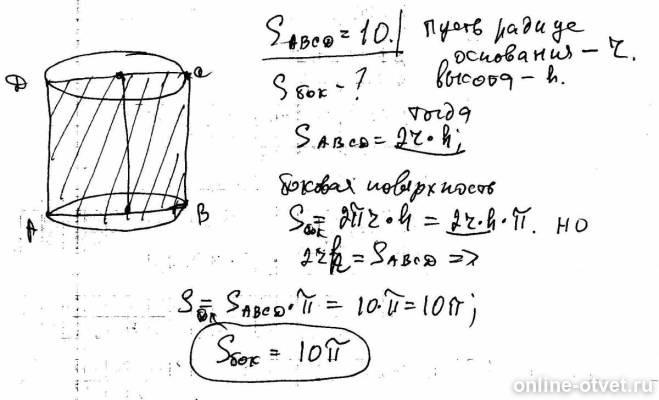 S ABCD = 10.
Пусть радиус
основания – r.
высота – h.
S бок – ?
тогда
S ABCD = 2r·h;
боковая поверхность
S бок = 2πr·h = 2r·h·π. но
2rh = S ABCD =>
S бок = S ABCD·π = 10·π = 10π;
S бок = 10π
D
C
A
B
online-otvet.ru